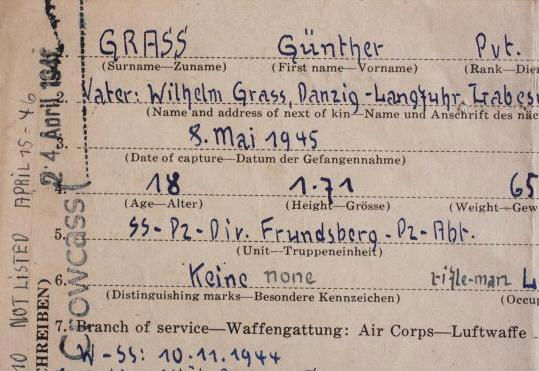 GRASS Günther Pvt.
(Surname—Zuname) (First name—Vorname) (Rank—Dien
2. Vater: Wilhelm Grass, Danzig-Langfuhr, Labes
(Name and address of next of kin—Name und Anschrift des näc
3. 8. Mai 1945
(Date of capture—Datum der Gefangennahme)
4. 18 1.71 65
(Age—Alter) (Height—Grösse) (Weight—Gew
5. SS-Pz-Div. Frundsberg-Pz-Abt.
(Unit—Truppeneinheit)
6. Keine none rifle-man L
(Distinguishing marks—Besondere Kennzeichen) (Occu
7. Branch of service—Waffengattung: Air Corps—Luftwaffe
W-SS: 10.11.1944
NOT LISTED APRIL 15-46
24. April
Crowcass
HREIBEN)